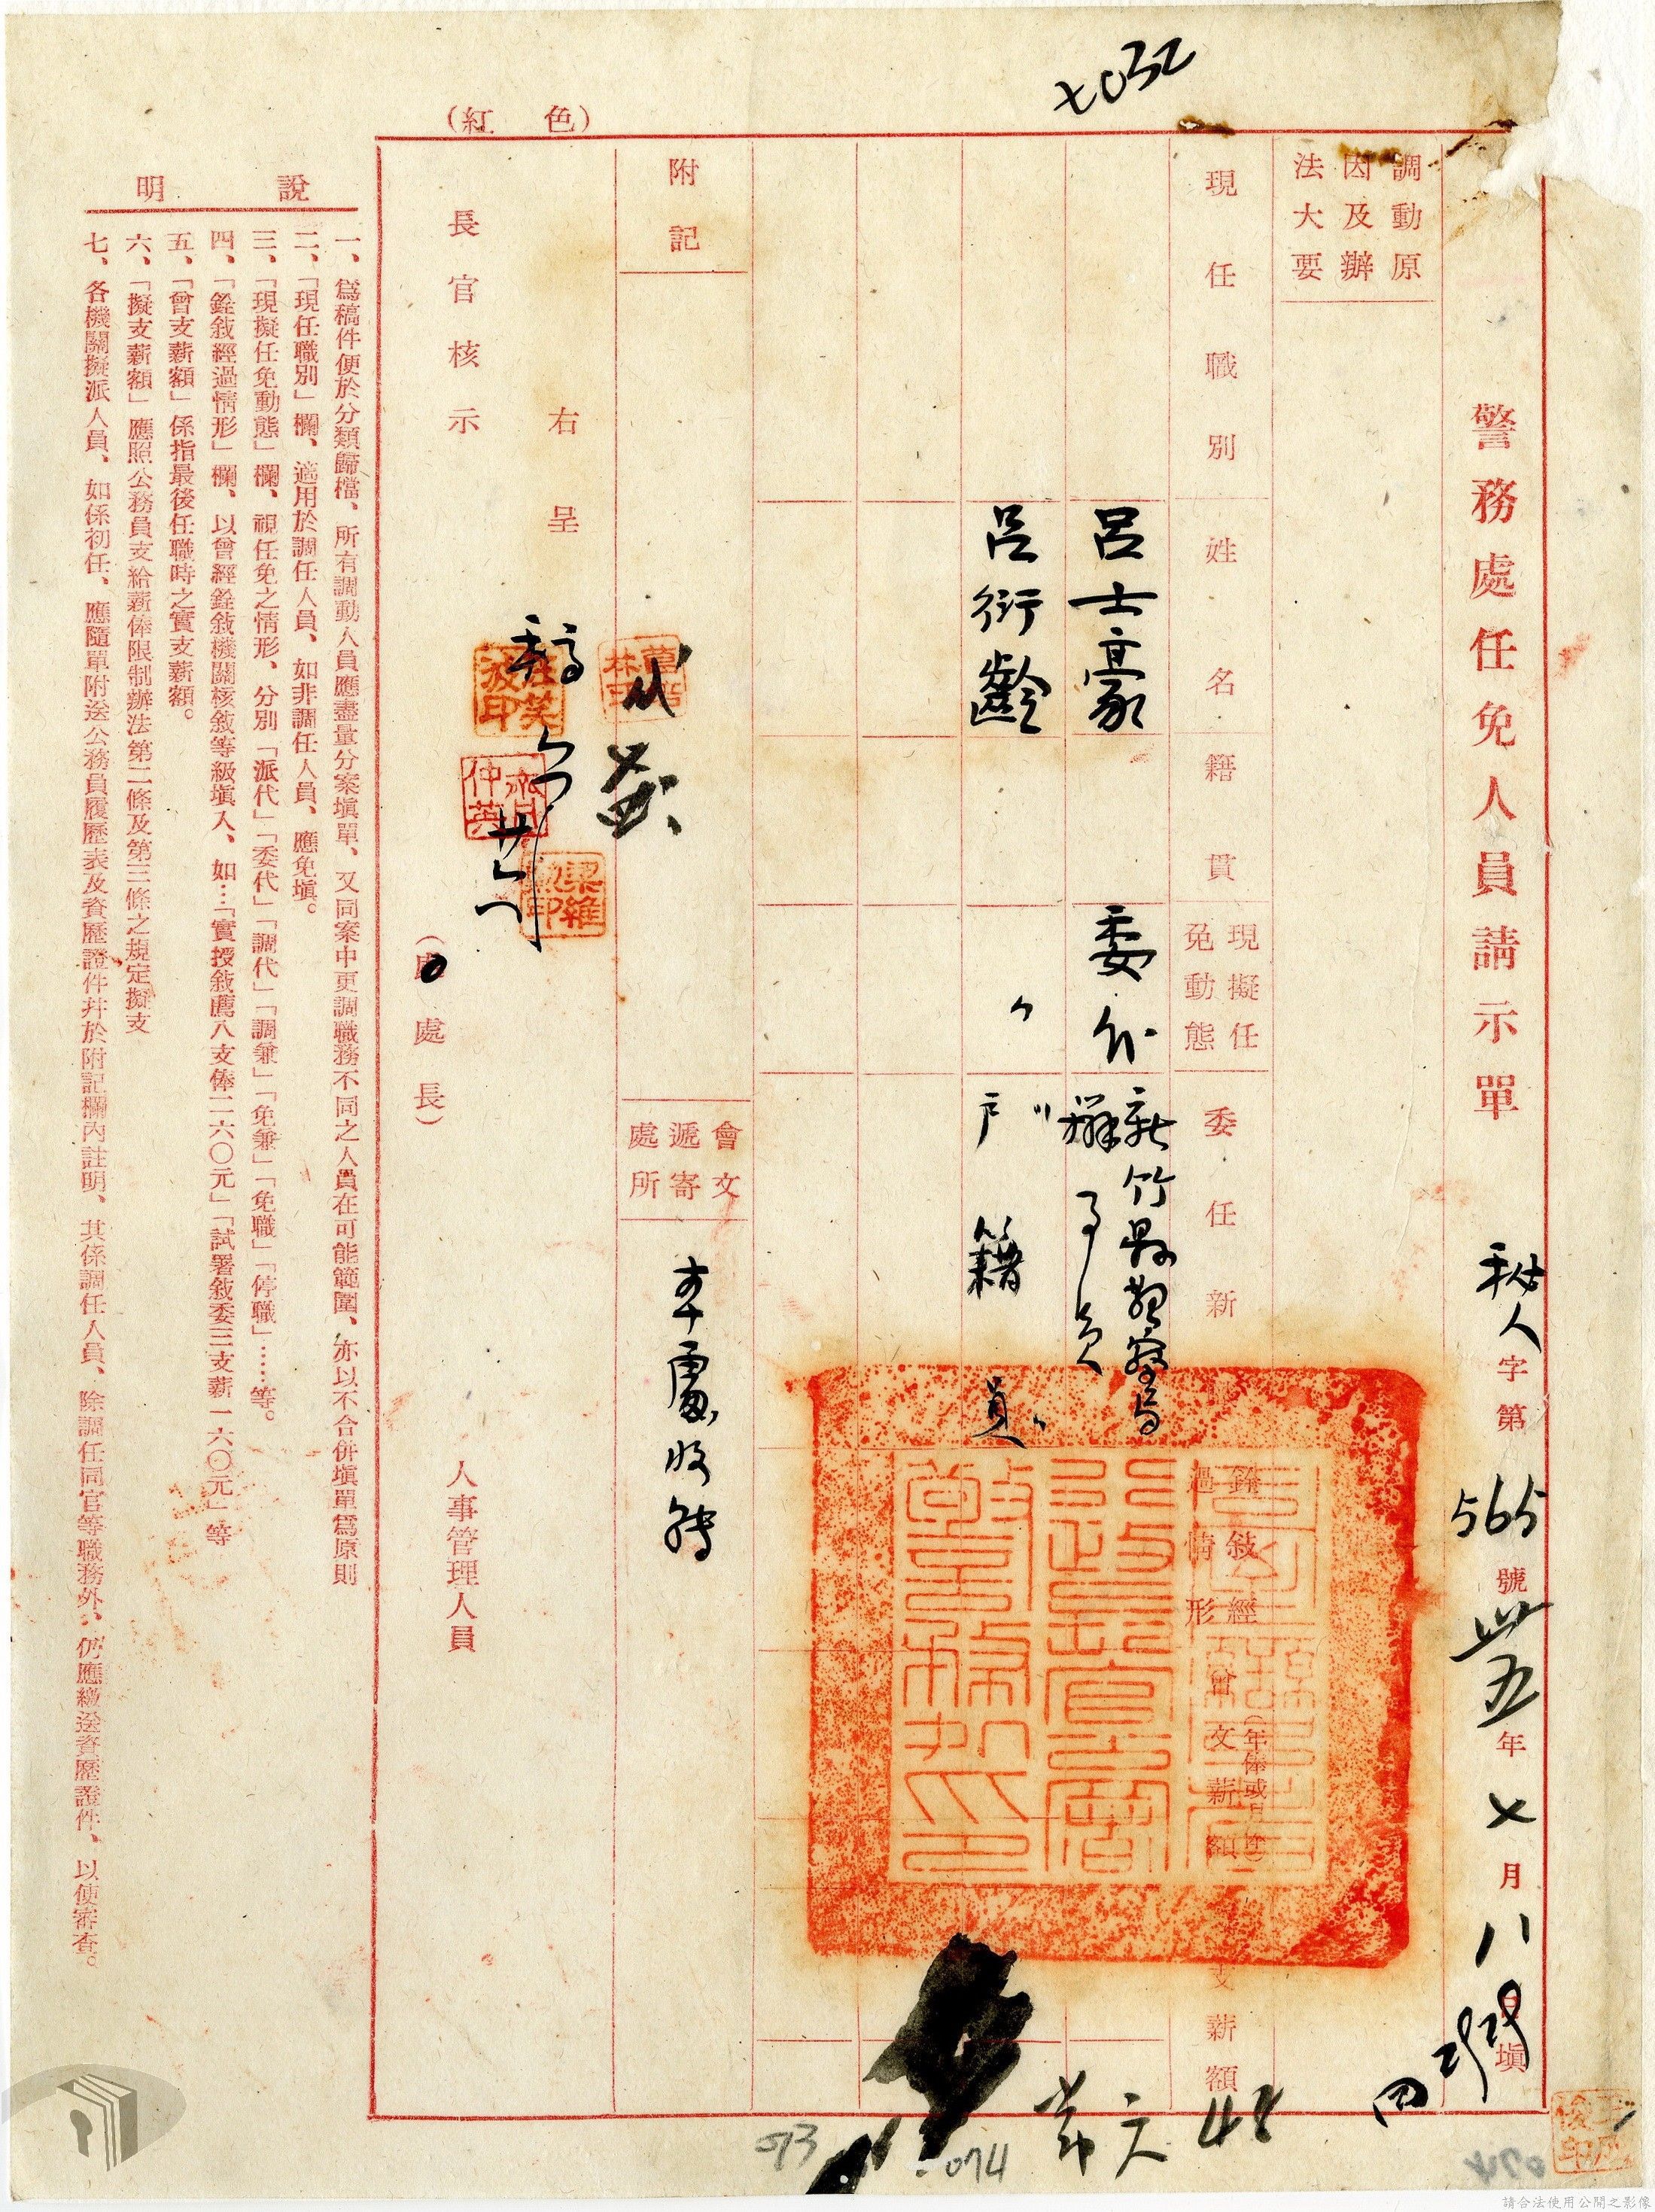 警務處任免人員請示單
秘人字第565號
卅五年七月八日填
調動原因及辦法大要
現任職別
姓名
籍貫
現擬任免動態
委任新
銓敘經過情形
曾支薪額
支薪額
呂士豪
委代
新竹縣警察局
辦事員
呂衍齡
〃
〃
戶籍員
附記
會文遞寄處所
本處收轉
右呈
長官核示
處長)
人事管理人員
(紅色)
說明
一、爲稿件便於分類歸檔、所有調動人員應盡量分案塡單、又同案中更調職務不同之人員在可能範圍、亦以不合併塡單爲原則
二、「現任職別」欄、適用於調任人員、如非調任人員、應免塡。
三、「現擬任免動態」欄、視任免之情形、分別「派代」「委代」「調代」「調兼」「免兼」「免職」「停職」……等。
四、「銓敘經過情形」欄、以曾經銓敘機關核敘等級塡入、如…「實授敘薦八支俸二六〇元」「試署敘委三支薪一六〇元」等
五、「曾支薪額」係指最後任職時之實支薪額。
六、「擬支薪額」應照公務員支給薪俸限制辦法第二條及第三條之規定擬支
七、各機關擬派人員、如係初任、應隨單附送公務員履歷表及資歷證件幷於附記欄內註明、其係調任人員、除調任同官等職務外、仍應繳送資歷證件、以便審查。
073
074
48
請合法使用公開之影像